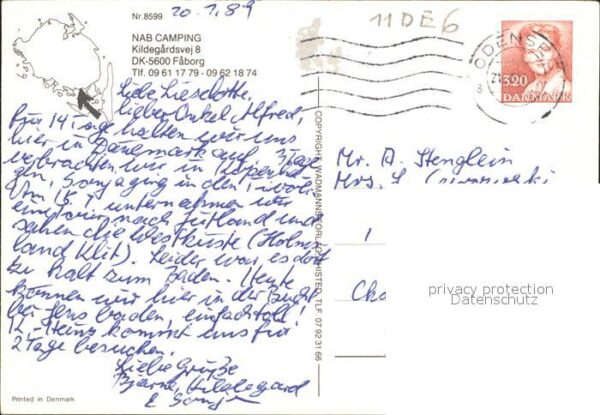 20.7.89
Nr.8599
11 DE 6
NAB CAMPING
Kildegårdsvej 8
DK-5600 Fåborg
Tlf. 09 61 17 79 - 09 62 18 74
ODENSE
3.20
DANMARK
Liebe Lieselotte,
lieber Onkel Alfred,
für 14 Tage halten wir uns
hier in Dänemark auf. 3 Tage
verbrachten wir in
gen, Sonja ging in den
Am 18. unternahmen wir
nach Jütland und
sahen die Westküste (Holms-
land Klit). Leider war es dort
zu kalt zum Baden. Heute
können wir hier in der Bucht
bei baden, einfach toll!
kommt uns für
2 Tage besuchen.
Liebe Grüße
Bjarne, Hildegard
& Sonja
COPYRIGHT WADMANNS FORLAG THISTED, TLF. 07 92 31 66
Mr. A. Stenglein
Mrs. L
Printed in Denmark
privacy protection
Datenschutz